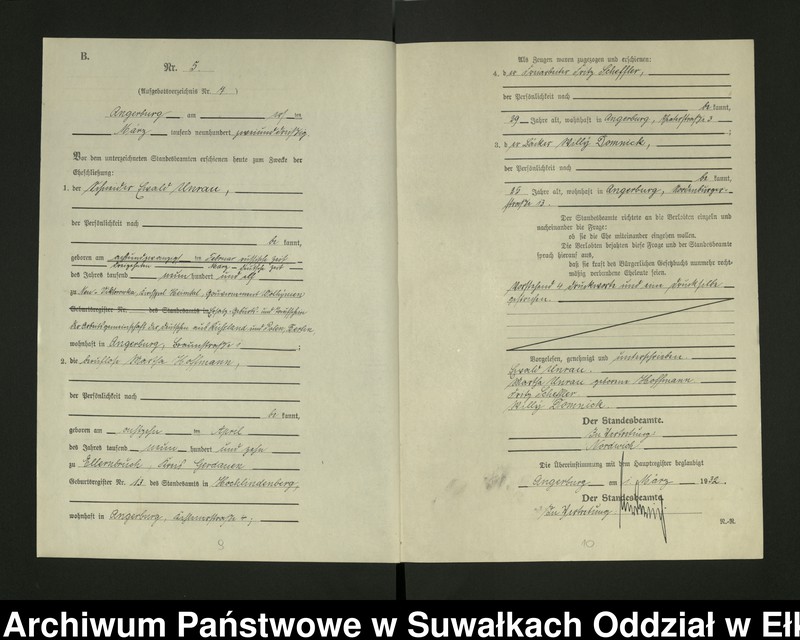 B.
Nr. 5.
(Aufgebotsverzeichnis Nr. 4)
Angerburg am
März tausend neunhundert zweiunddreißig
Vor dem unterzeichneten Standesbeamten erschienen heute zum Zwecke der
Eheschließung:
1. der Schneider Ewald Unrau,
der Persönlichkeit nach
be kannt,
geboren am achtundzwanzig im Februar russische Zeit
dreizehnten März - deutsche Zeit
des Jahres tausend neun hundert und elf
zu Neu-Viktorowka, Gouvernement Wolhynien
Geburtsregister Nr. des Standesamts in
der Arbeitsgemeinschaft der Deutschen aus Rußland und Polen, Berlin
wohnhaft in Angerburg, Braunstraße ;
2. die berufslose Martha Hoffmann,
der Persönlichkeit nach
be kannt,
geboren am im April
des Jahres tausend neun hundert und zehn
zu Ellernbruch, Kreis Gerdauen
Geburtsregister Nr. 13. des Standesamts in Hochlindenberg,
wohnhaft in Angerburg, ;
9
Als Zeugen waren zugezogen und erschienen:
4. der Fritz Scheffler,
der Persönlichkeit nach
be kannt,
29 Jahre alt, wohnhaft in Angerburg,
3. der Bäcker Willy Domnick,
der Persönlichkeit nach
be kannt,
25 Jahre alt, wohnhaft in Angerburg, Nordenburger-
straße 13.
Der Standesbeamte richtete an die Verlobten einzeln und
nacheinander die Frage:
ob sie die Ehe miteinander eingehen wollen.
Die Verlobten bejahten diese Frage und der Standesbeamte
sprach hierauf aus,
daß sie kraft des Bürgerlichen Gesetzbuchs nunmehr recht-
mäßig verbundene Eheleute seien.
Vorstehend 4 Druckworte und eine Druckzeile
gestrichen.
Vorgelesen, genehmigt und unterschrieben
Ewald Unrau.
Martha Unrau geborene Hoffmann.
Fritz Scheffler.
Willy Domnick.
Der Standesbeamte.
In Vertretung
Die Übereinstimmung mit dem Hauptregister beglaubigt
Angerburg am März 1932.
Der Standesbeamte
In Vertretung
N.-R.
10
Archiwum Państwowe w Suwałkach Oddział w Eł